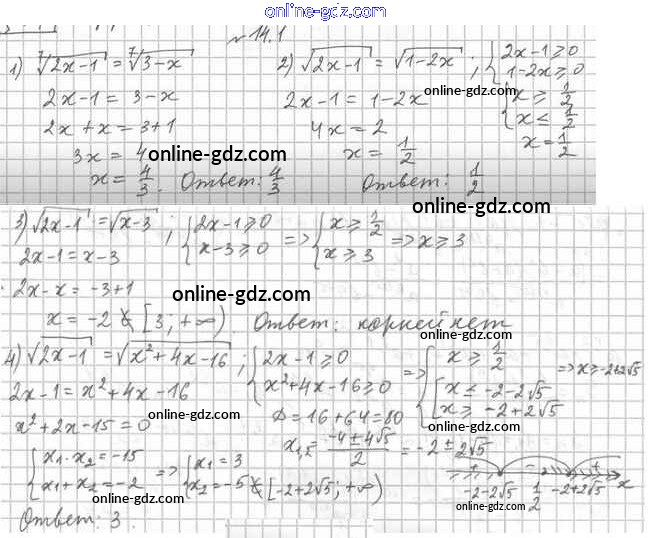 online-gdz.com
№ 14.1
1) ⁷√(2x-1) = ⁷√(3-x)
2x-1 = 3-x
2x+x = 3+1
3x = 4
x = 4/3. Ответ: 4/3
online-gdz.com
2) √(2x-1) = √(1-2x) ; { 2x-1 ≥ 0
1-2x ≥ 0
2x-1 = 1-2x
{ x ≥ 1/2
x ≤ 1/2
4x = 2
x = 1/2
x = 1/2
Ответ: 1/2
online-gdz.com
online-gdz.com
3) √(2x-1) = √(x-3) ; { 2x-1 ≥ 0
x-3 ≥ 0 => { x ≥ 1/2
x ≥ 3 => x ≥ 3
2x-1 = x-3
2x-x = -3+1
x = -2 ∉ [3; +∞). Ответ: корней нет
online-gdz.com
online-gdz.com
4) √(2x-1) = √(x²+4x-16) ; { 2x-1 ≥ 0
x²+4x-16 ≥ 0 => { x ≥ 1/2
{ x ≤ -2-2√5
x ≥ -2+2√5
=> x ≥ -2+2√5
2x-1 = x²+4x-16
D = 16+64 = 80
x²+2x-15 = 0
x₁,₂ = (-4±4√5)/2 = -2±2√5
{ x₁·x₂ = -15
x₁+x₂ = -2 => { x₁ = 3
x₂ = -5 ∉ [-2+2√5; +∞)
+ - + x
-2-2√5 1/2 -2+2√5
Ответ: 3.
online-gdz.com
online-gdz.com
online-gdz.com
online-gdz.com
online-gdz.com